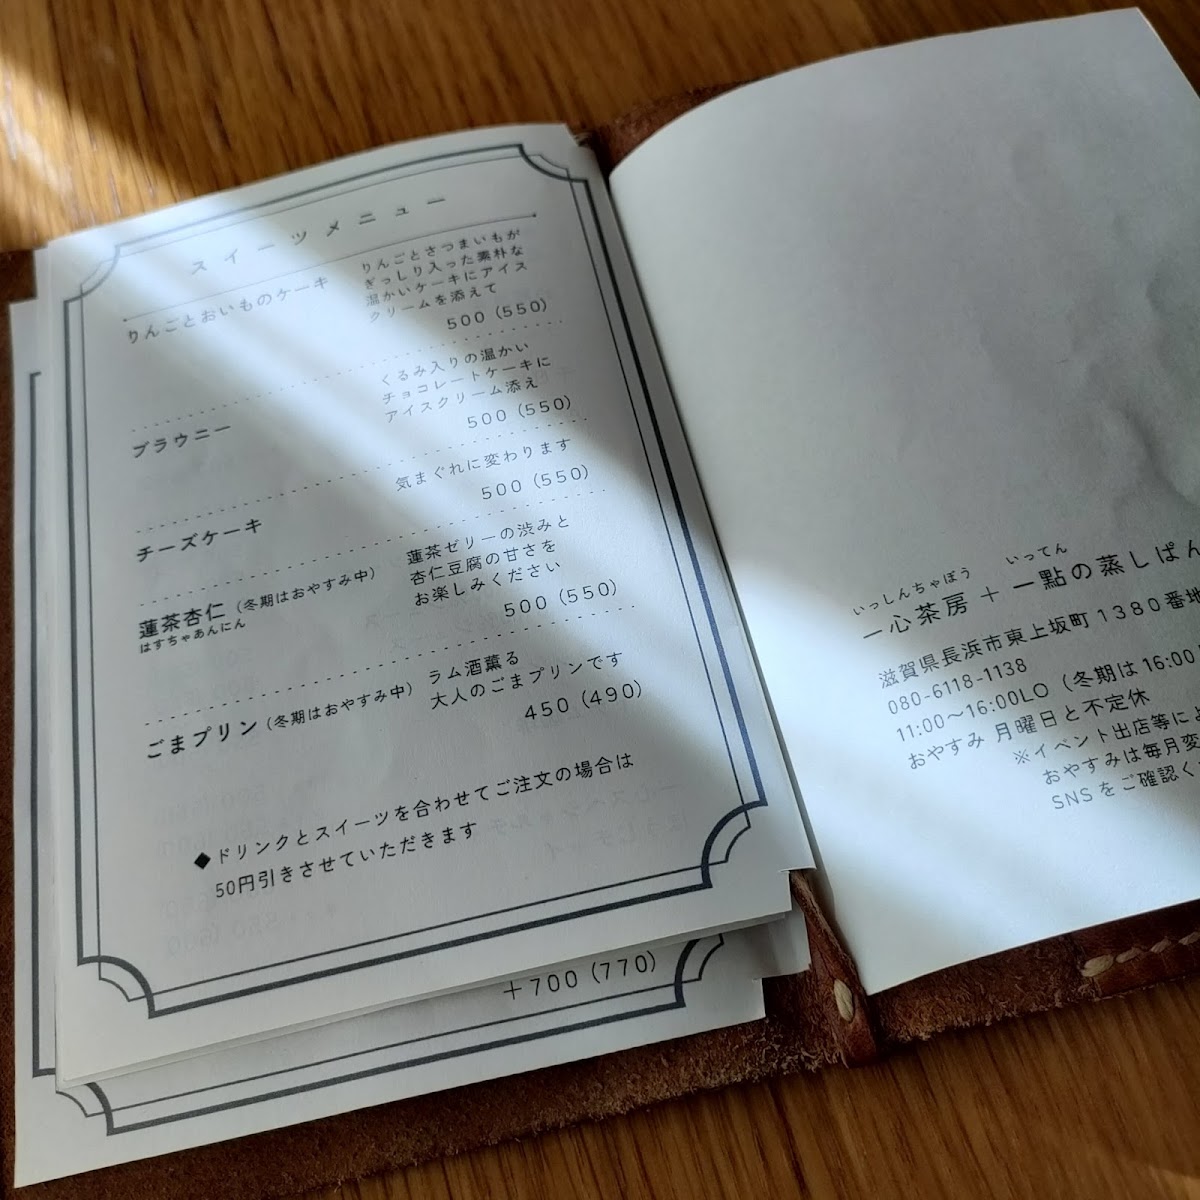 スイーツメニュー
りんごとおいものケーキ
りんごとさつまいもが
ぎっしり入った素朴な
温かいケーキにアイス
クリームを添えて
500（550）
ブラウニー
くるみ入りの温かい
チョコレートケーキに
アイスクリーム添え
500（550）
チーズケーキ
気まぐれに変わります
500（550）
蓮茶杏仁（冬期はおやすみ中）
はすちゃあんにん
蓮茶ゼリーの渋みと
杏仁豆腐の甘さを
お楽しみください
500（550）
ごまプリン（冬期はおやすみ中）
ラム酒薫る
大人のごまプリンです
450（490）
◆ドリンクとスイーツを合わせてご注文の場合は
50円引きさせていただきます
＋700（770）
いっしんちゃぼう いってん
一心茶房＋一點の蒸しぱん
滋賀県長浜市東上坂町1380番地
080-6118-1138
11:00〜16:00LO（冬期は16:00
おやすみ 月曜日と不定休
※イベント出店等によ
おやすみは毎月変
SNSをご確認く